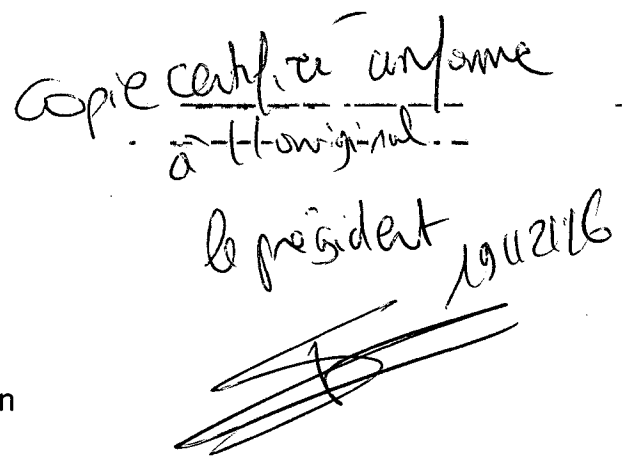 Copie certifiée conforme
à l'original
le président 19/12/16
n